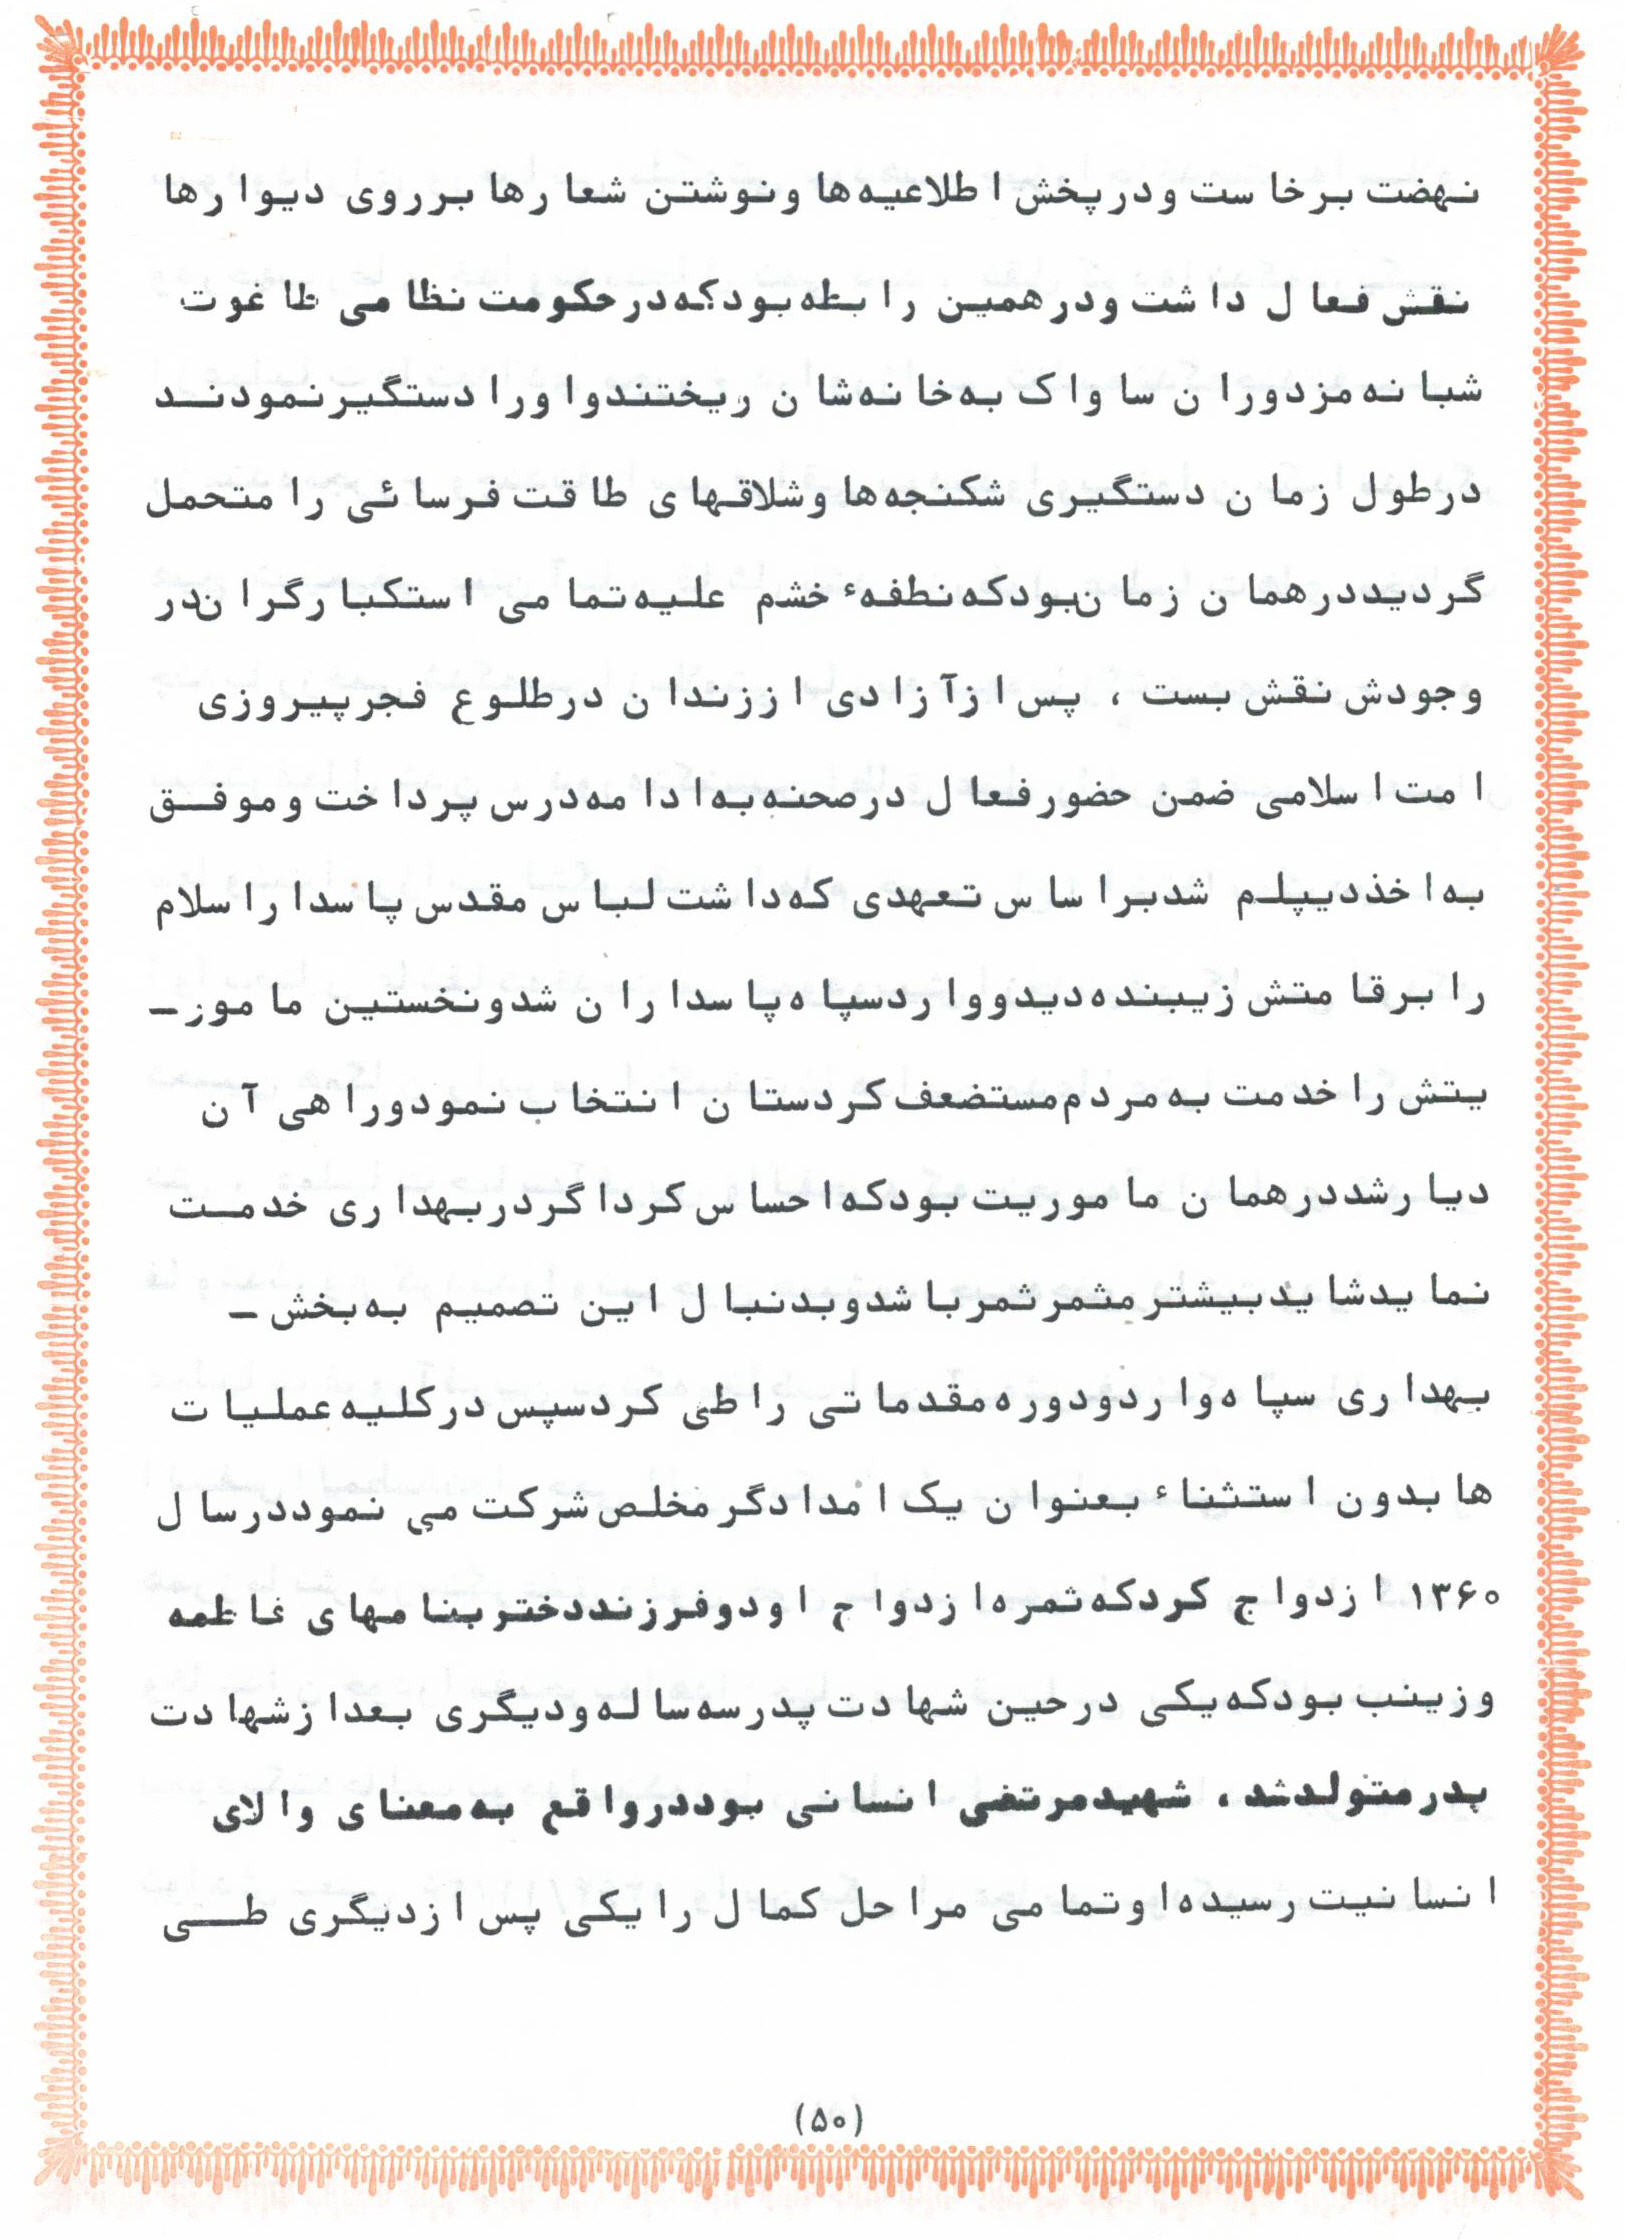 نهضت برخاست ودرپخش اطلاعیه‌ها ونوشتن شعارها برروی دیوارها
نقش فعال داشت ودرهمین رابطه بودکه‌درحکومت نظامی طاغوت
شبانه مزدوران ساواک به‌خانه‌شان ریختندواورادستگیرنمودنــد
درطول زمان دستگیری شکنجه‌ها وشلاقهای طاقت فرسائی را متحمل
گردیددرهمان زمان‌بودکه‌نطفهٔ خشم علیه‌تمامی استکبارگران‌در
وجودش نقش بست ، پس ازآزادی اززندان درطلوع فجرپیروزی
امت اسلامی ضمن حضورفعال درصحنه به‌ادامه‌درس پرداخت وموفــق
به‌اخذدیپلـم شدبراساس تعهدی که‌داشت لباس مقدس پاسداراسلام
را برقامتش زیبنده‌دیدوواردسپاه‌پاسداران شدونخستین ماموز-
یتش را خدمت به‌مردم‌مستضعف کردستان انتخاب نمودوراهی آن
دیارشددرهمان ماموریت بودکه‌احساس کرداگردربهداری خدمــت
نمایدشایدبیشترمثمرثمرباشدوبدنبال این تصمیم به‌بخش -
بهداری سپاه‌واردودوره‌مقدماتی راطی کردسپس درکلیه‌عملیات
هابدون استثناء بعنوان یک امدادگرمخلص شرکت می نموددرسال
۱۳۶۰ ازدواج کردکه‌ثمره‌ازدواج اودوفرزنددختربنامهای فاطمه
وزینب بودکه‌یکی درحین شهادت پدرسه‌ساله‌ودیگری بعدازشهادت
پدرمتولدشد، شهیدمرتضی انسانی بوددرواقع به‌معنای والای
انسانیت رسیده‌اوتمامی مراحل کمال رایکی پس ازدیگری طـــی
(۵۰)